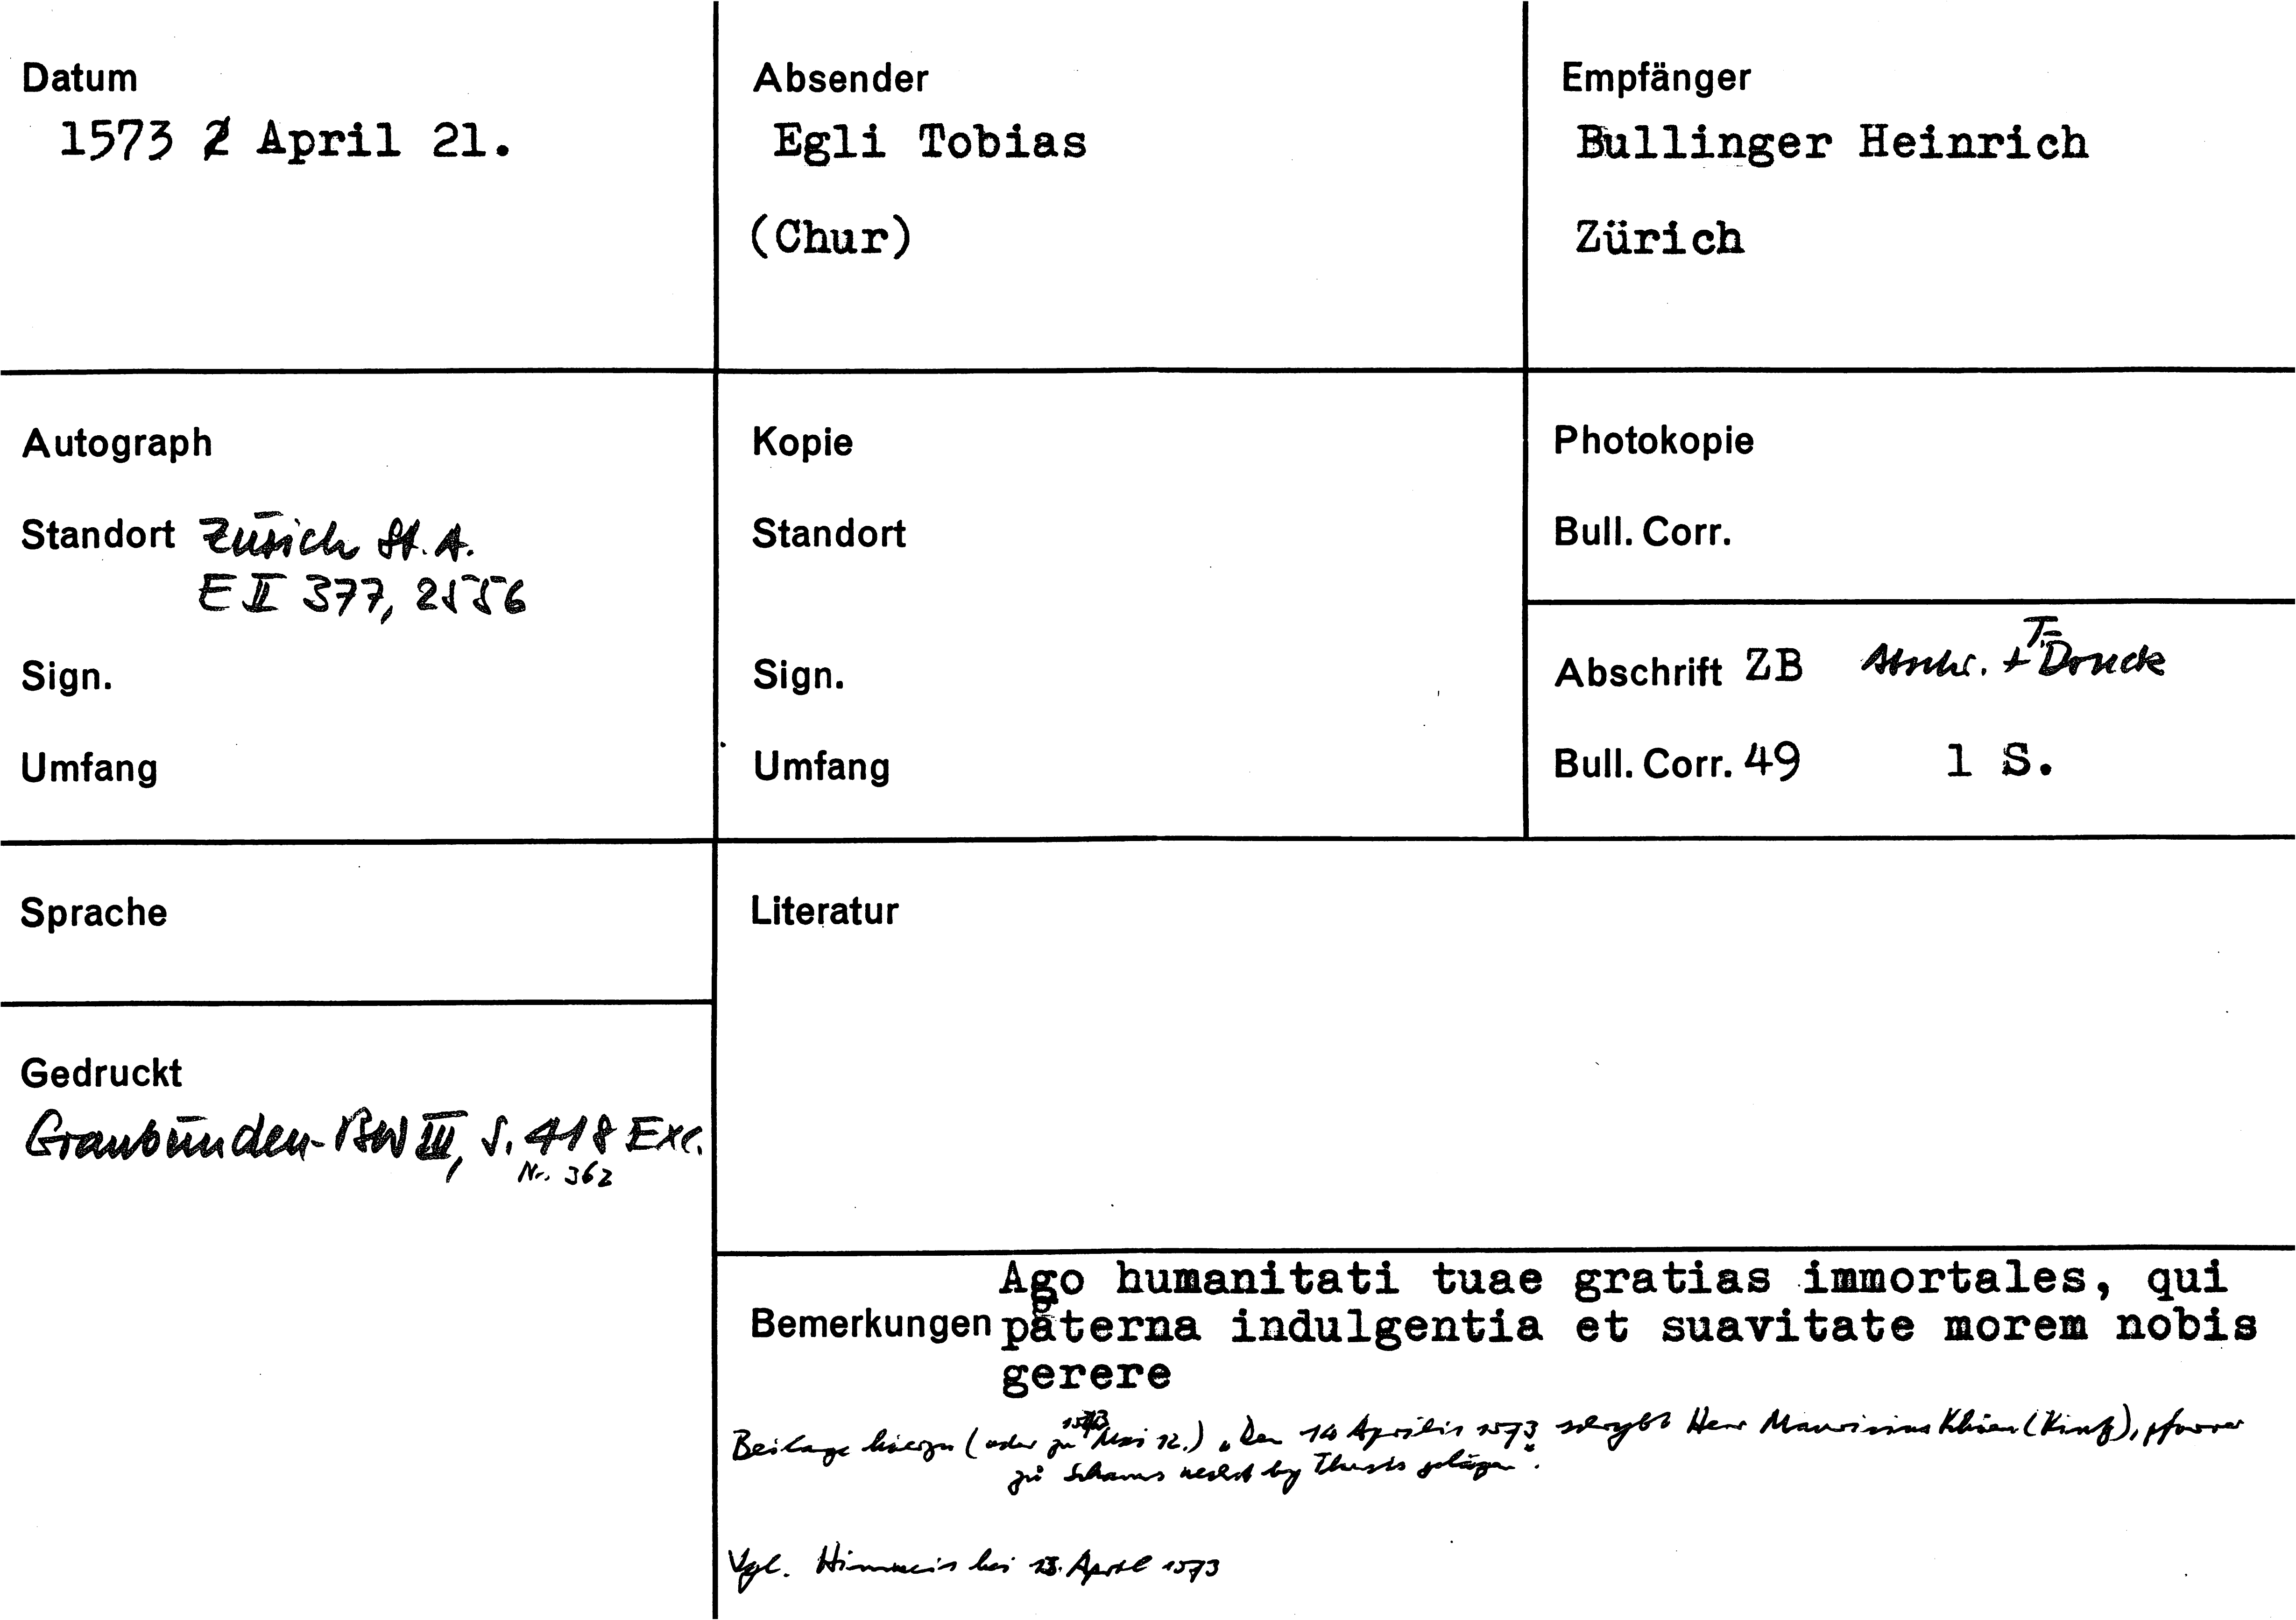 Datum
1573 April 21.
Absender
Egli Tobias
(Chur)
Empfänger
Bullinger Heinrich
Zürich
Autograph
Standort Zürich St. A.
E II 377, 2556
Sign.
Umfang
Kopie
Standort
Sign.
Umfang
Photokopie
Bull. Corr.
Abschrift ZB Abschr. + T-Druck
Bull. Corr. 49 1 S.
Sprache
Gedruckt
Graubünden-BW III, S. 418 Exc.
Nr. 362
Literatur
Ago humanitati tuae gratias immortales, qui
Bemerkungen paterna indulgentia et suavitate morem nobis
gerere
Beilage hierzu (oder zu 1573 Mai 12.) "Den 14 Aprilis 1573 schrybt Herr Mauricius , pfarrer
zů Schams nechst by Thusis gelägen".
Vgl. Hinweis bei 13. April 1573